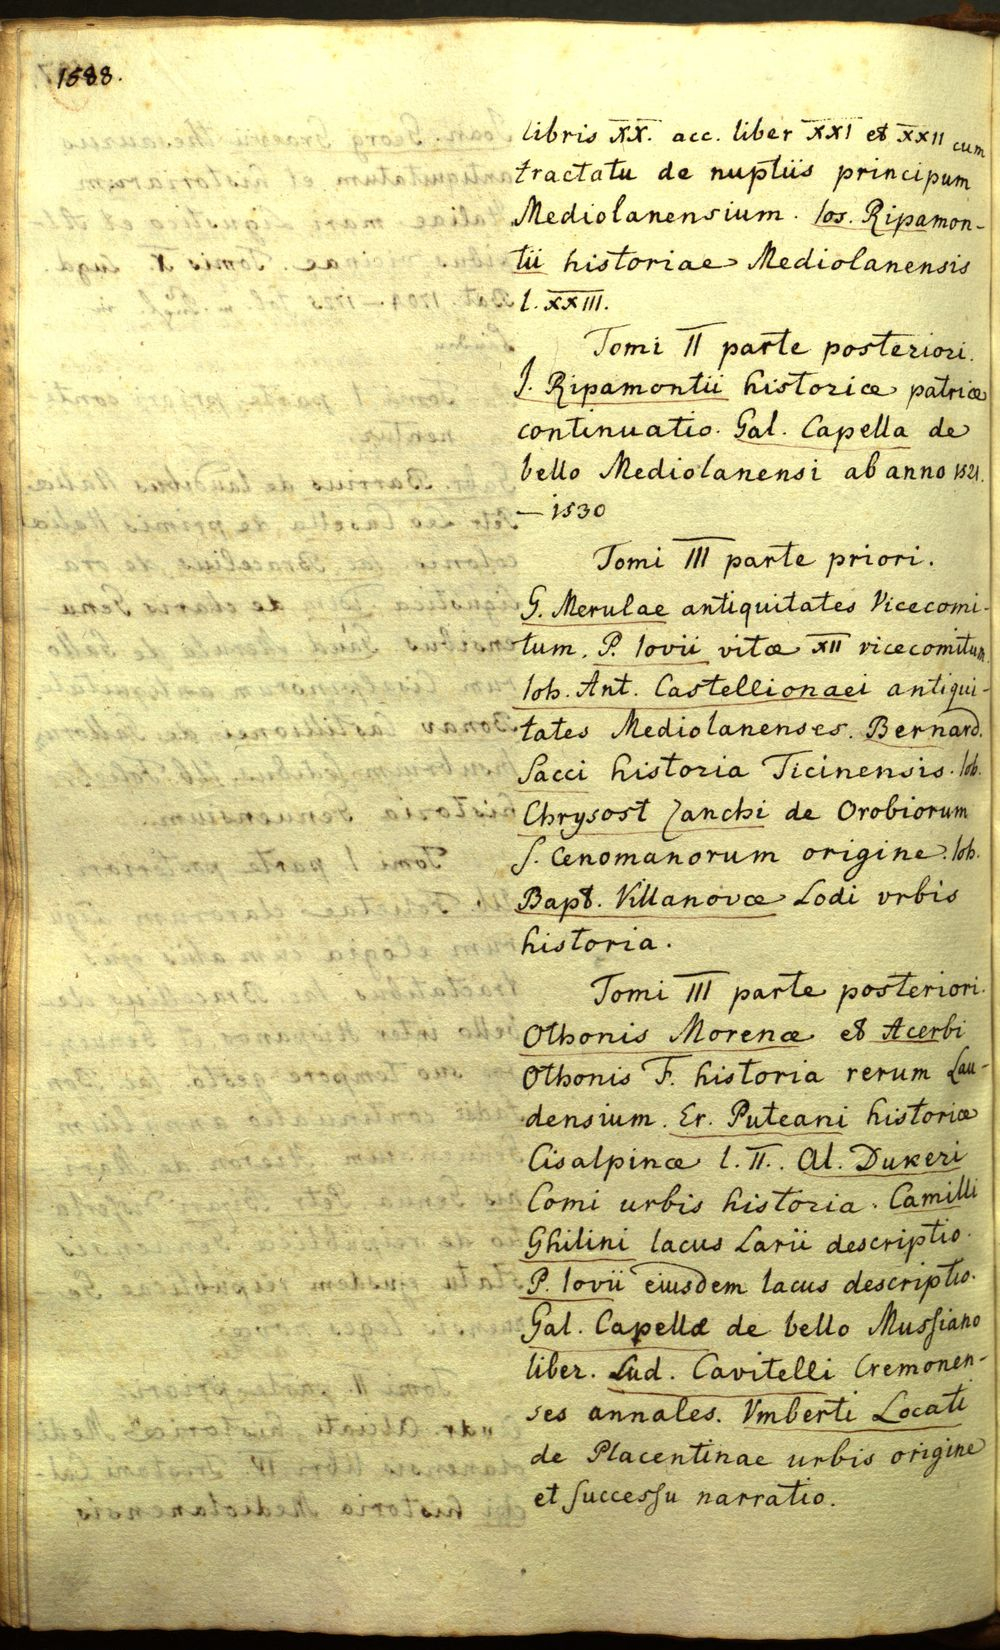 1588.
libris XX. acc. liber XXI et XXII cum
tractatu de nuptiis principum
Mediolanensium. Ios. Ripamon-
tii historiae Mediolanensis
l. XXIII.
Tomi II parte posteriori.
J. Ripamontii historiæ patriæ
continuatio. Gal. Capella de
bello Mediolanensi ab anno 1521.
— 1530
Tomi III parte priori.
G. Merulae antiquitates Vicecomi-
tum. P. Iovii vitæ XII vicecomitum.
Ioh. Ant. Castellionaei antiqui-
tates Mediolanenses. Bernard.
Sacci historia Ticinensis. Ioh.
Chrysost Zanchi de Orobiorum
s. Cenomanorum origine. Ioh.
Bapt. Villanovæ Lodi vrbis
historia.
Tomi III parte posteriori.
Othonis Morenæ et Acerbi
Othonis F. historia rerum Lau-
densium. Er. Puteani historiæ
Cisalpinæ l. II. Al. Dukeri
Comi urbis historia. Camilli
Ghilini lacus Larii descriptio.
P. Iovii eiusdem lacus descriptio.
Gal. Capellæ de bello Mussiano
liber. Lud. Cavitelli Cremonen-
ses annales. Vmberti Locati
de Placentinae urbis origine
et successu narratio.